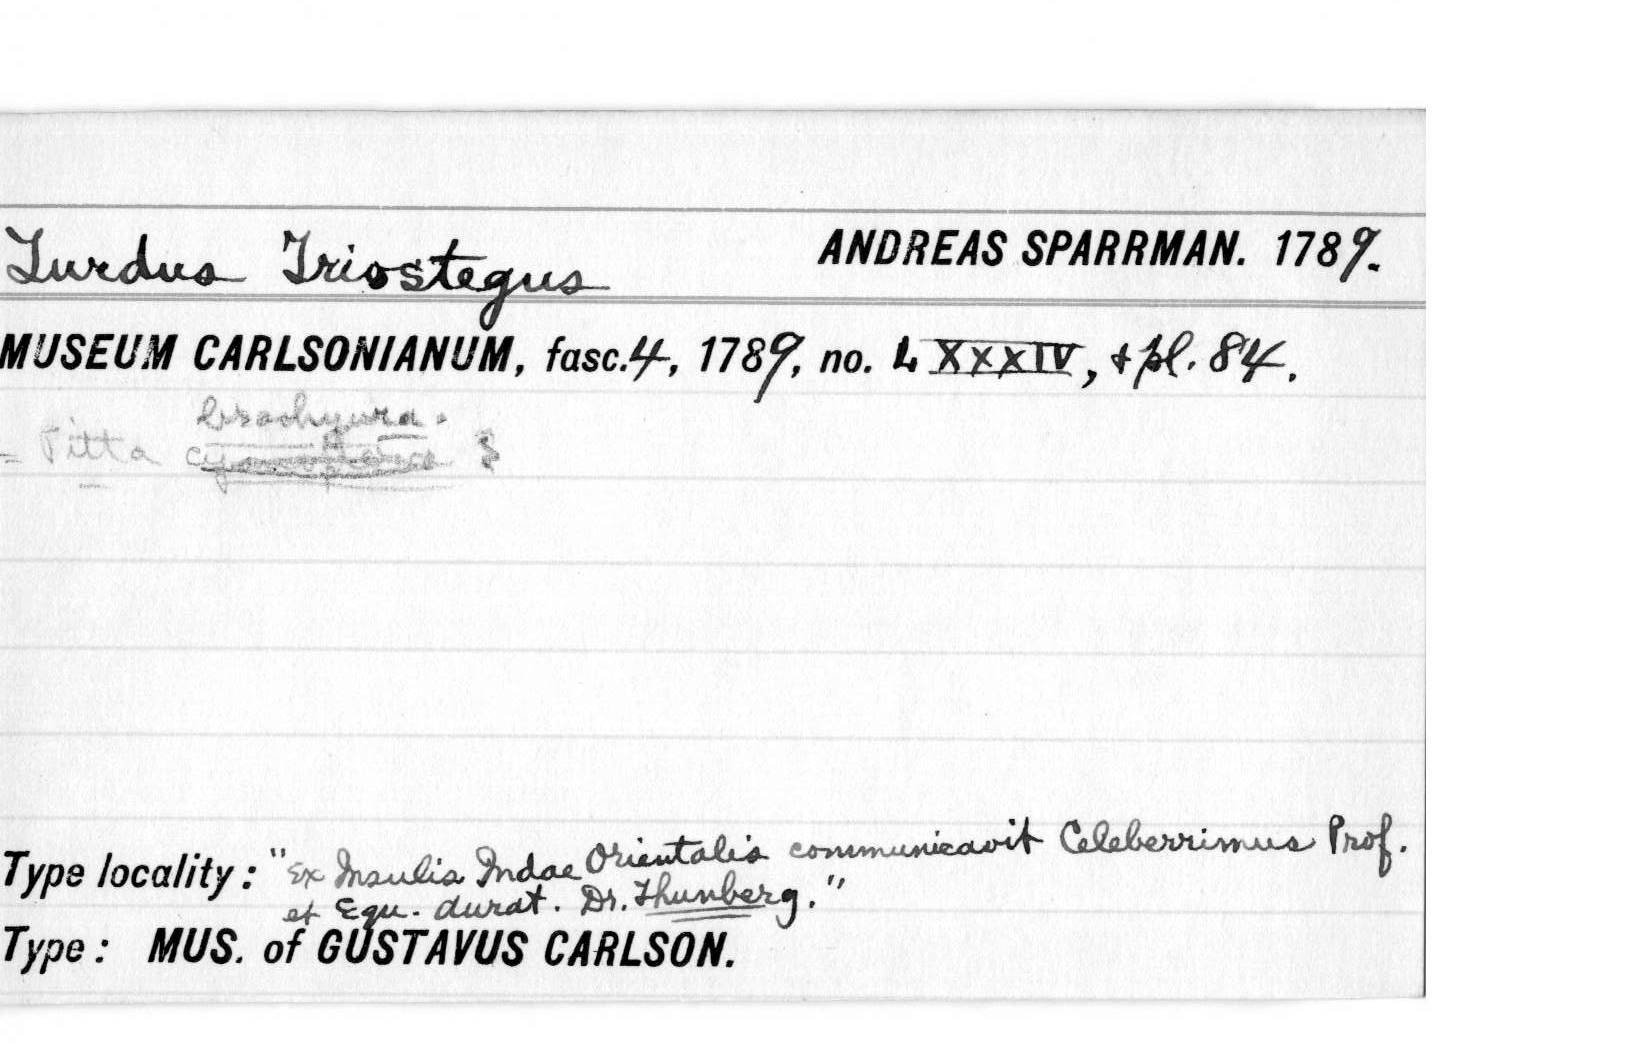 Turdus Triostegus ANDREAS SPARRMAN. 1789.
MUSEUM CARLSONIANUM, fasc. 4, 1789, no. LXXXIV, & pl. 84.
brachyura.
= Pitta
Type locality: "Ex Insulis Indae Orientalis communicavit Celeberrimus Prof.
et Equ. aurat. Dr. Thunberg."
Type: MUS. of GUSTAVUS CARLSON.